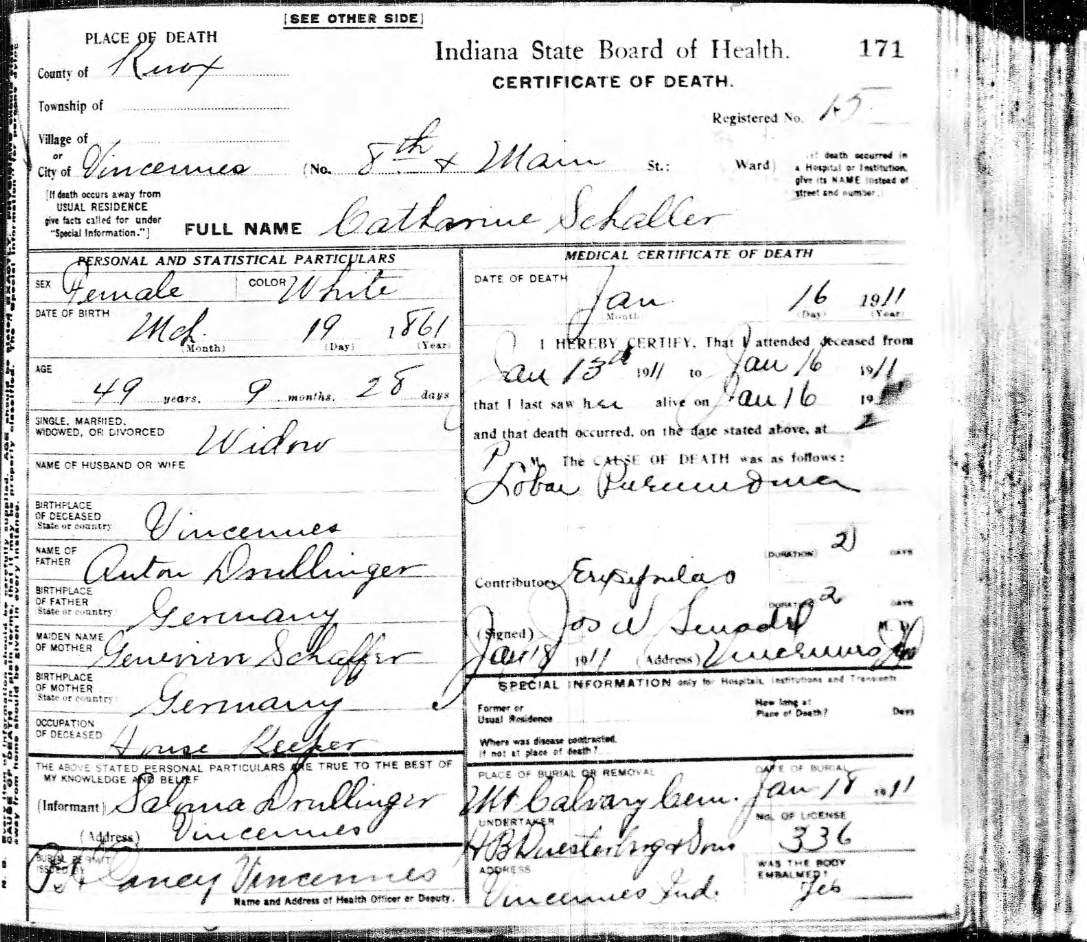 [SEE OTHER SIDE]
PLACE OF DEATH
Indiana State Board of Health. 171
County of Knox
CERTIFICATE OF DEATH.
Township of
Registered No. 15
Village of
or
City of Vincennes (No. 8th & Main St.: Ward)
death occurred in
a Hospital or Institution,
give its NAME instead of
street and number.
[If death occurs away from
USUAL RESIDENCE
give facts called for under
"Special Information."]
FULL NAME Catharine Schaller
PERSONAL AND STATISTICAL PARTICULARS
SEX Female COLOR White
DATE OF BIRTH
Mch 19 1861
(Month) (Day) (Year)
AGE
49 years. 9 months. 28 days
SINGLE, MARRIED,
WIDOWED, OR DIVORCED Widow
NAME OF HUSBAND OR WIFE
BIRTHPLACE
OF DECEASED
State or country Vincennes
NAME OF
FATHER Anton Drullinger
BIRTHPLACE
OF FATHER
State or country Germany
MAIDEN NAME
OF MOTHER Genevieve Schaffer
BIRTHPLACE
OF MOTHER
State or country Germany
OCCUPATION
OF DECEASED House Keeper
THE ABOVE STATED PERSONAL PARTICULARS ARE TRUE TO THE BEST OF
MY KNOWLEDGE AND BELIEF
(Informant) Saloma Drullinger
(Address) Vincennes
BURIAL PERMIT
ISSUED BY
Vincennes
Name and Address of Health Officer or Deputy.
MEDICAL CERTIFICATE OF DEATH
DATE OF DEATH
Jan 16 1911
(Month) (Day) (Year)
I HEREBY CERTIFY, That I attended deceased from
Jan 13th 1911 to Jan 16 1911
that I last saw her alive on Jan 16 19
and that death occurred, on the date stated above, at 2
P. M. The CAUSE OF DEATH was as follows:
Lobar Pneumonia
(DURATION) 2 DAYS
Contributory Erysipelas
(DURATION) 2 DAYS
(Signed) Jos M. D.
Jan 18 1911 (Address) Vincennes
SPECIAL INFORMATION only for Hospitals, Institutions and Transients
Former or
Usual Residence
How long at
Place of Death? Days
Where was disease contracted,
if not at place of death?
PLACE OF BURIAL OR REMOVAL
Mt Calvary Cem.
DATE OF BURIAL
Jan 18 1911
UNDERTAKER
H B Duesterberg & Sons
NO. OF LICENSE
336
ADDRESS
Vincennes Ind.
WAS THE BODY
EMBALMED?
Yes